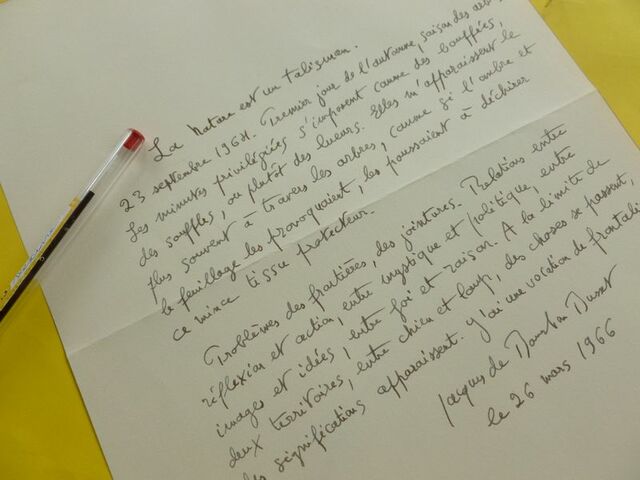 La Nature est un talisman.
23 septembre 1964. Premier jour de l'automne, saison des
Les minutes privilégiées s'imposent comme des bouffées,
des souffles, ou plutôt des lueurs. Elles m'apparaissent le
plus souvent à travers les arbres, comme si l'ombre et
le feuillage les provoquaient, les poussaient à déchirer
ce mince tissu protecteur.
Problèmes des frontières, des jointures. Relations entre
réflexion et action, entre mystique et politique, entre
images et idées, entre foi et raison. A la limite de
deux territoires, entre chien et loup, des choses se passent,
des significations apparaissent. J'ai une vocation de
Jacques de Bourbon Busset
le 26 mars 1966